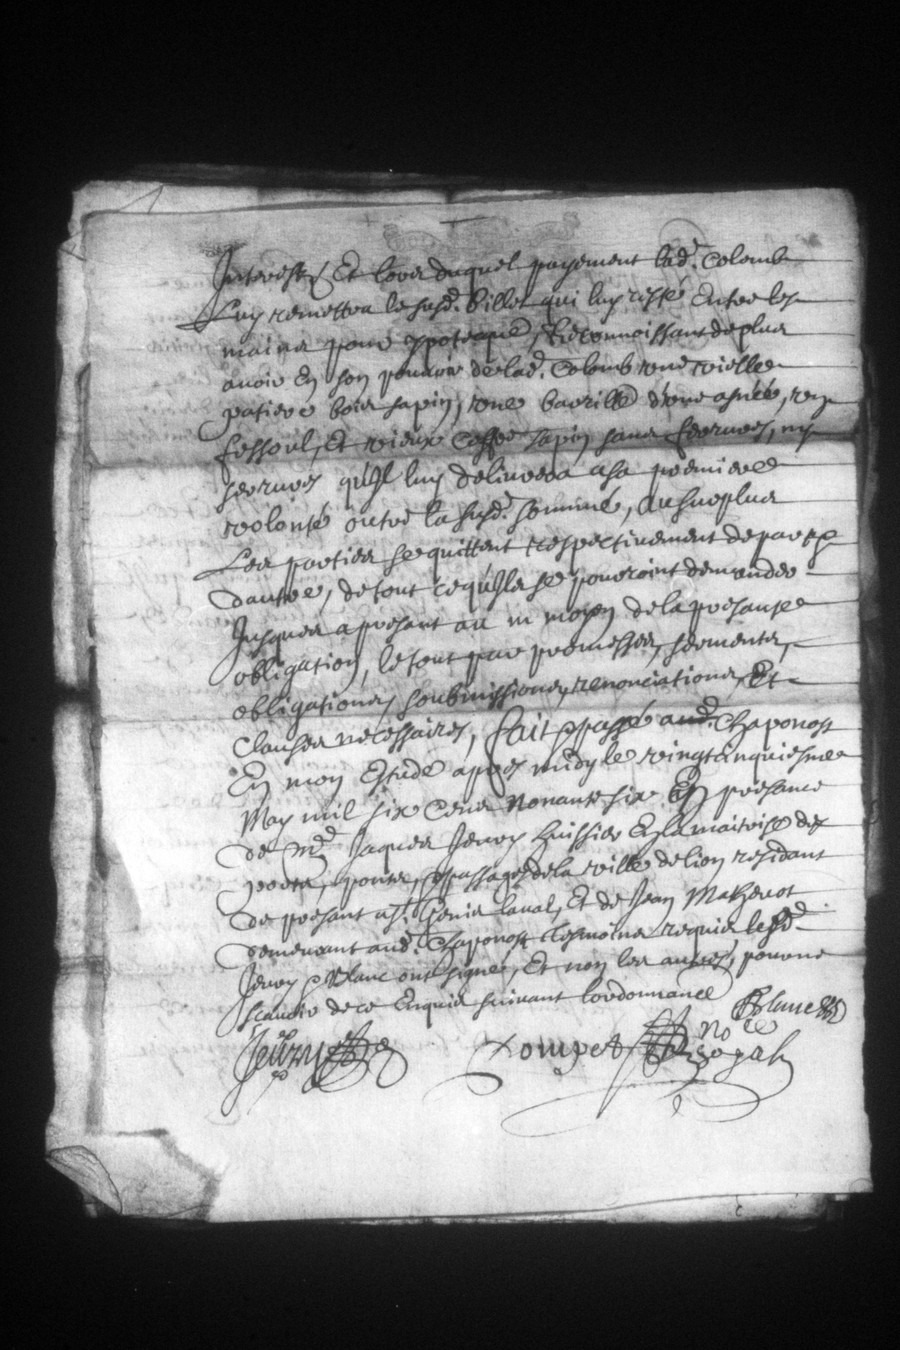 Interests, Et lors duquel payement lad. Colomb
Luy remettra le susd. billet qui luy reste Entre les
mains pour ypoteque, Reconnoissant de plus
avoir En son pouvoir de lad. Colomb une vielle
patiere bois sapin, une barrille d'une asnée, un
fessoul, Et vieux Coffre sapin sans serrures, ny
ferrures qu'Il luy delivrera a sa premiere
volonté outre la susd. somme, Au surplus
Les parties se quittent respectivement de part &
dautre, de tout ce qu'Ils se pourroint demander
Jusques a present au m moyen de la presante
obligation, le tout par promesses, serments,
obligations, soubmissions, renonciations, Et
Clauses necessaires, fait & passé aud. Chaponost
En mon Estude apres midy le vingtcinquiesme
May mil six Cens Nonante six En presance
de Mᵉ Jaques Jevry huissier En la maitrise des
ports, ponts, & passages de la ville de lion residant
de present a St. Genis laval, Et de Jean Mathevot
demeurant aud. Chaponost tesmoins requis lesd.
Jevry & Blanc ont signé, Et non les autres, pour ne
scavoir de ce Enquis suivant lordonnance Blanc
Jevry Pompet Noᵉ Royal